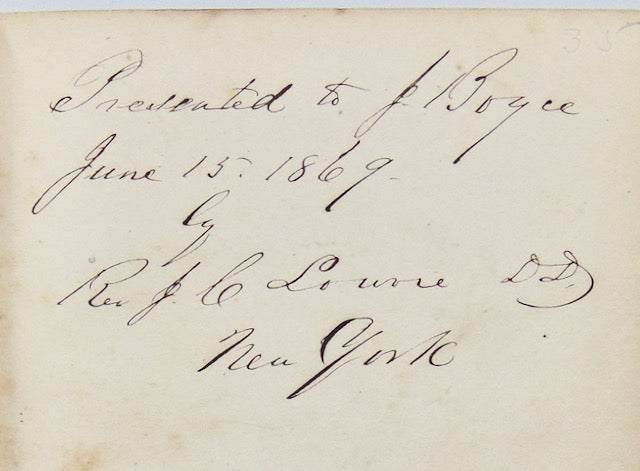 35
Presented to J Boyce
June 15. 1869.
by
Rev J. C Lowrie D.D.
New York